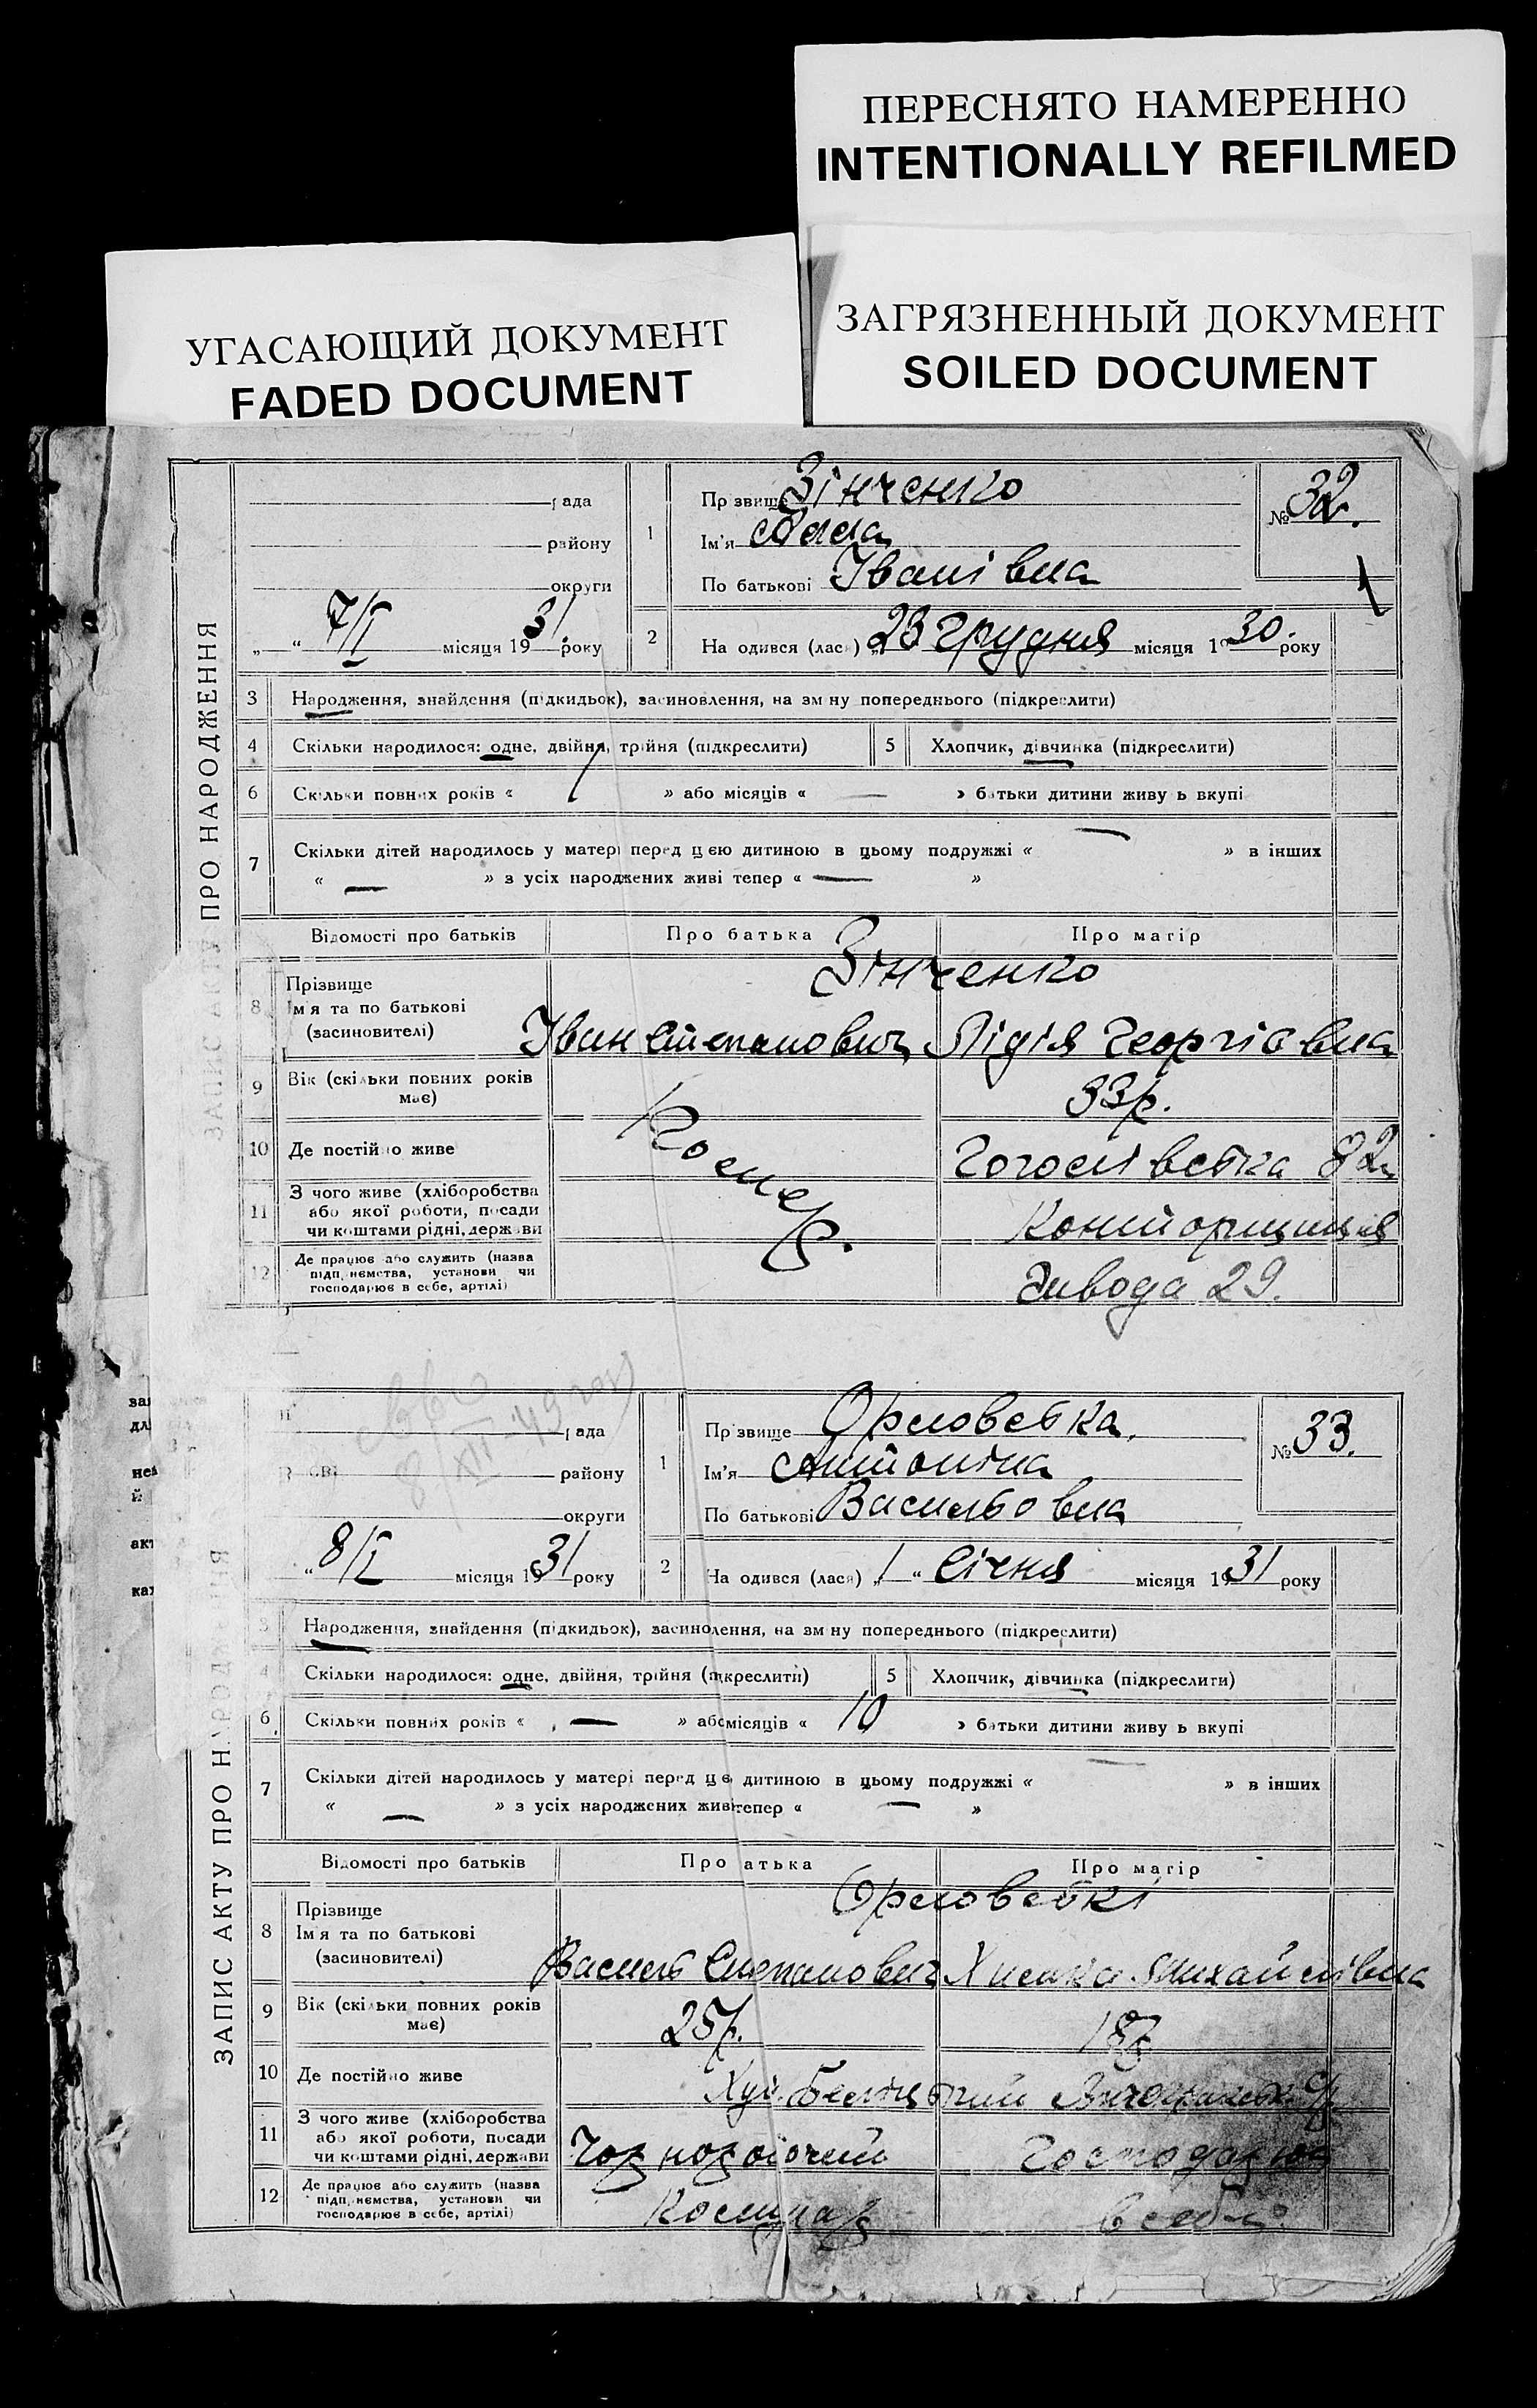 ПЕРЕСНЯТО НАМЕРЕННО
INTENTIONALLY REFILMED
УГАСАЮЩИЙ ДОКУМЕНТ
FADED DOCUMENT
ЗАГРЯЗНЕННЫЙ ДОКУМЕНТ
SOILED DOCUMENT
ЗАПИС АКТУ ПРО НАРОДЖЕННЯ
рада
району
округи
„ “ 7/I місяця 1931 року
1 Прізвище Зінченко
Ім'я Алла
По батькові Іванівна
№ 32.
2 На одився (лася) „23 грудня місяця 1930. року
3 Народження, знайдення (підкидьок), засиновлення, на зміну попереднього (підкреслити)
4 Скільки народилося: одне, двійня, трійня (підкреслити) 5 Хлопчик, дівчинка (підкреслити)
6 Скільки повних років « 1 » або місяців « — » батьки дитини живу ь вкупі
7 Скільки дітей народилось у матері перед цією дитиною в цьому подружжі « — » в інших
« — » з усіх народжених живі тепер « — »
Відомості про батьків Про батька Про матір
8 Прізвище Зінченко
Ім'я та по батькові Іван Степанович Лідія Георгієвна
(засновителі)
9 Вік (скільки повних років має) 33р.
10 Де постійно живе Гоголівська 82
11 З чого живе (хліборобства
або якої роботи, посади
чи коштами рідні, держави Конторщиця
12 Де працює або служить (назва
підприємства, установи чи
господарює в себе, артілі) Завода 29.
ЗАПИС АКТУ ПРО НАРОДЖЕННЯ
рада
району
округи
8/I місяця 1931 року
1 Прізвище Орловська.
Ім'я Антоніна
По батькові Васильовна
№ 33.
2 На одився (лася) „1“ Січня місяця 1931 року
3 Народження, знайдення (підкидьок), засинолення, на зміну попереднього (підкреслити)
4 Скільки народилося: одне, двійня, трійня (пкреслити) 5 Хлопчик, дівчинка (підкреслити)
6 Скільки повних років « — » або місяців « 10 » батьки дитини живу ь вкупі
7 Скільки дітей народилось у матері перед цією дитиною в цьому подружжі « — » в інших
« — » з усіх народжених живі тепер « — »
Відомості про батьків Про атька Про матір
8 Прізвище Орловські
Ім'я та по батькові Василь Степанович Михайлівна
(засиновителі)
9 Вік (скільки повних років має) 25р. 18р
10 Де постійно живе Хут.
11 З чого живе (хліборобства
або якої роботи, посади
чи коштами рідні, держави Чорноробочий Господарює
12 Де працює або служить (назва
підприємства, установи чи
господарює в себе, артілі) в себе